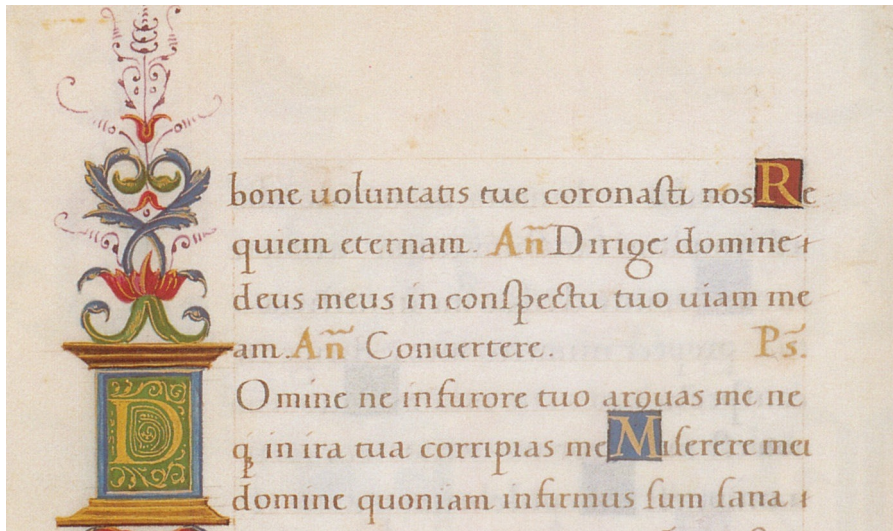 bone uoluntatis tue coronaſti nos Re
quiem eternam. An̄ Dirige domine
deus meus in conſpectu tuo uiam me
am. An̄ Conuertere. Ps̄.
Domine ne in furore tuo arguas me ne
q̨ in ira tua corripias me Miſerere mei
domine quoniam infirmus ſum ſana